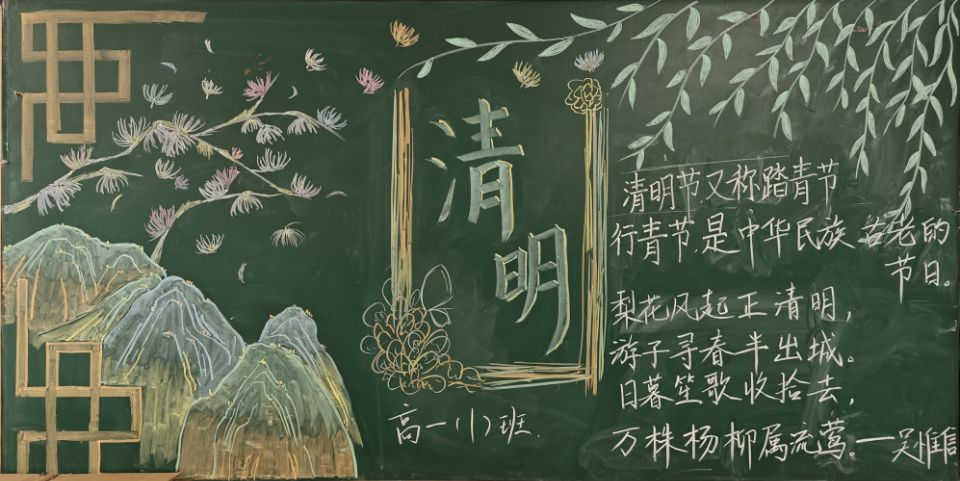 清明
高一(1)班.
清明节又称踏青节
行青节,是中华民族古老的
节日。
梨花风起正清明,
游子寻春半出城。
日暮笙歌收拾去,
万株杨柳属流莺。——吴惟信